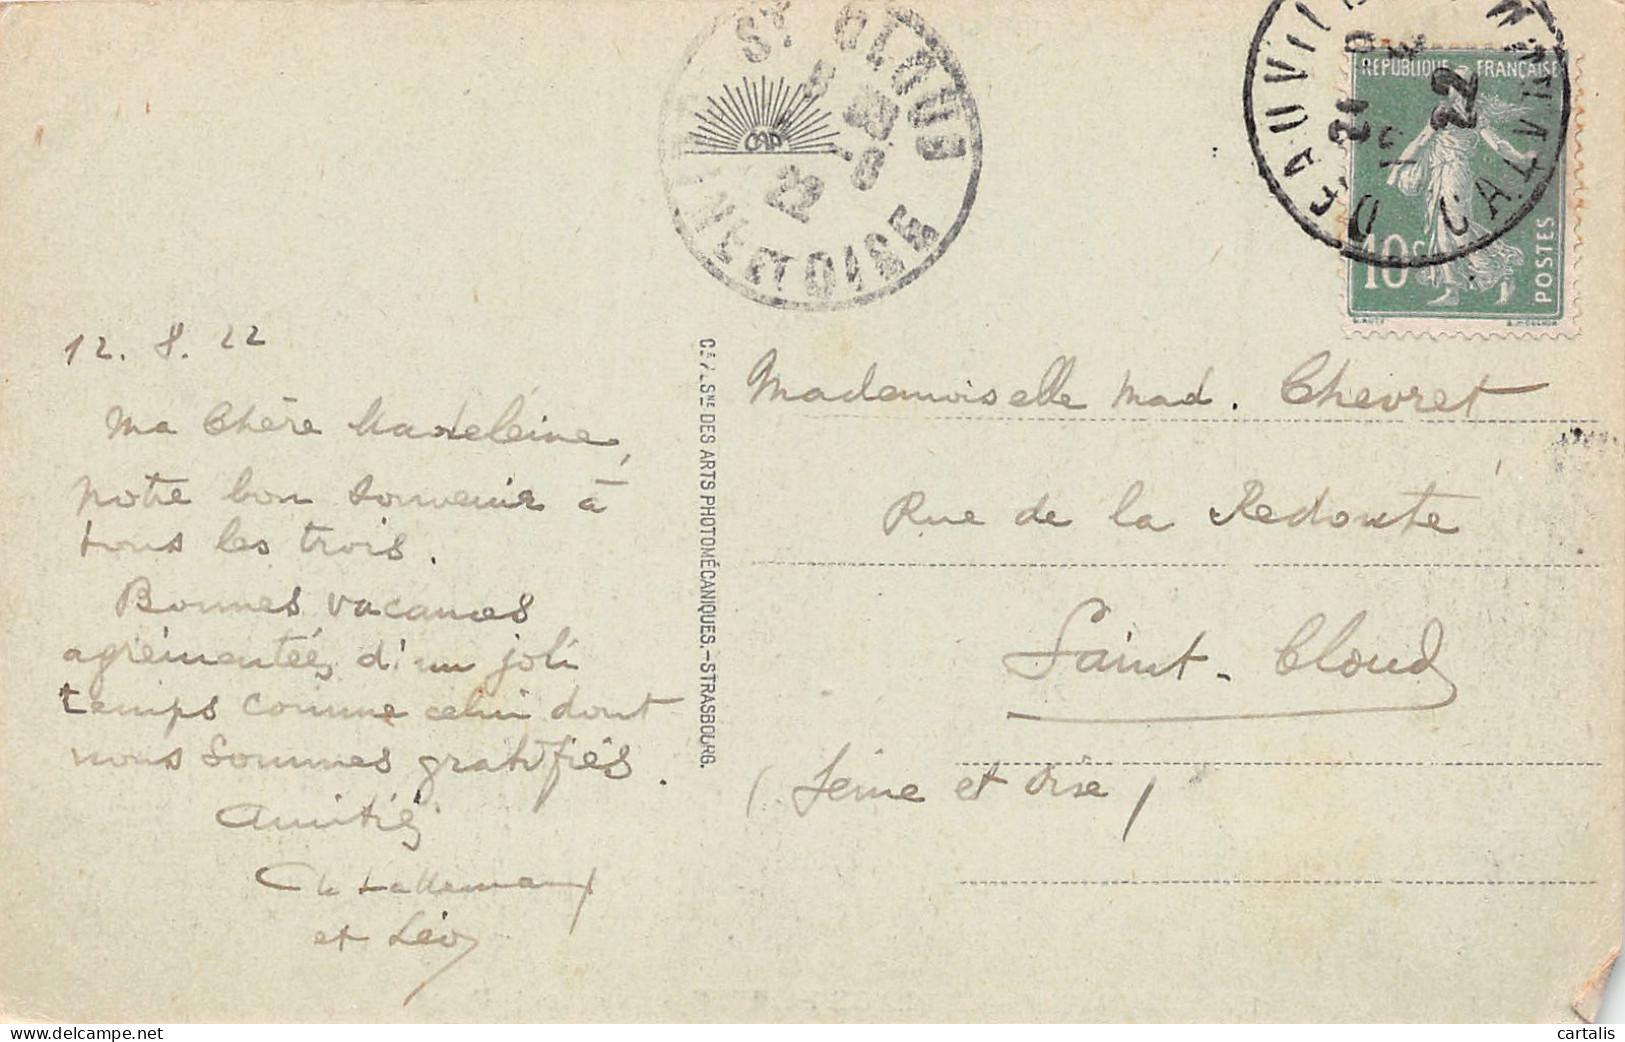 ST CLOUD
SEINE ET OISE
22
CAP
DEAUVILLE
CALVADOS
22
REPUBLIQUE FRANÇAISE
10c
POSTES
12. 8. 22
Ma Chère Madeleine,
notre bon souvenir à
tous les trois.
Bonnes vacances
agrémentées d'un joli
temps comme celui dont
nous sommes gratifiés.
Amitiés
Ch Lallemand
et Léo
CIE ALSNE DES ARTS PHOTOMÉCANIQUES.-STRASBOURG.
Mademoiselle Mad. Chevret
Rue de la Redoute
Saint-Cloud
(Seine et Oise)
delcampe.net
cartalis